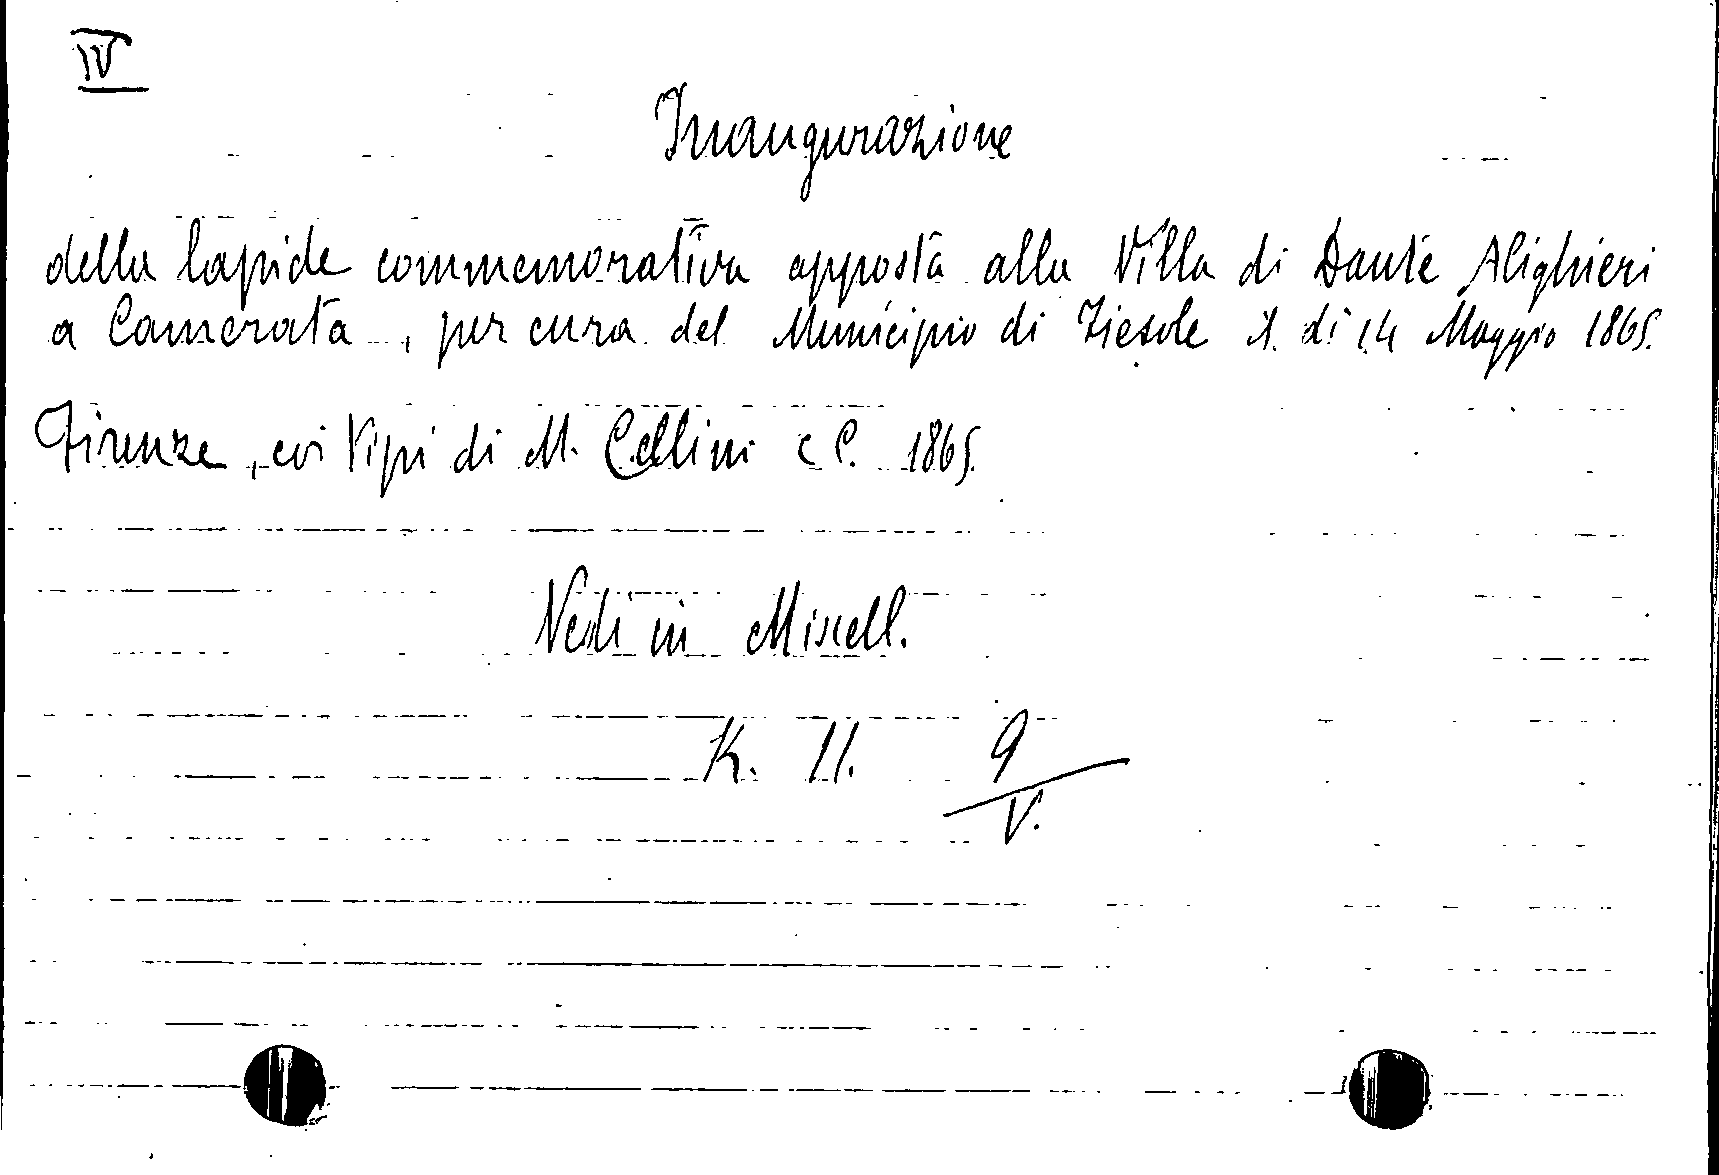 IV
Inaugurazione
della lapide commemorativa apposta alla Villa di Dante Alighieri
a Camerata, per cura del Municipio di Fiesole il di 14 Maggio 1865.
Firenze, coi Tipi di M. Cellini e C. 1865.
Vedi in Miscell.
K. II. 9
V.